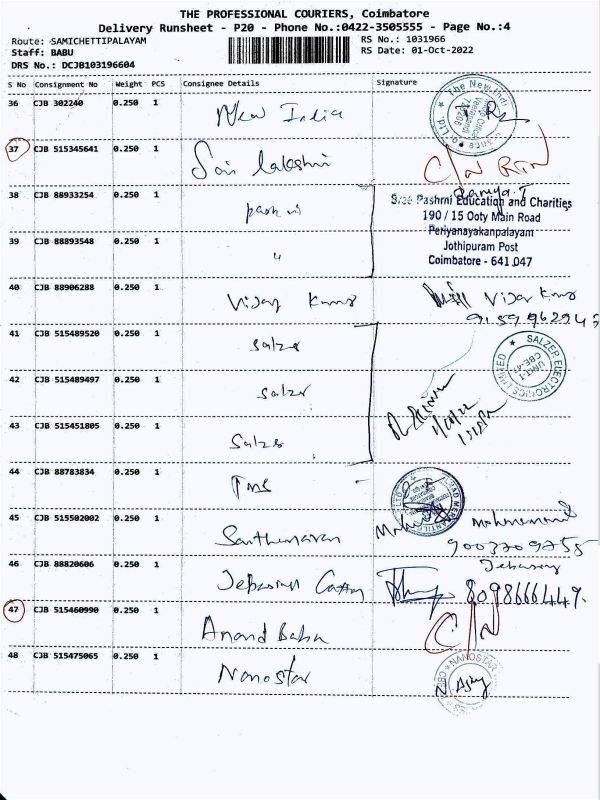 THE PROFESSIONAL COURIERS, Coimbatore
Delivery Runsheet - P20 - Phone No.:0422-3505555 - Page No.:4
Route: SAMICHETTIPALAYAM RS No.: 1031966
Staff: BABU RS Date: 01-Oct-2022
DRS No.: DCJB103196604
S No Consignment No Weight PCS Consignee Details Signature
36 CJB 302240 0.250 1 New India
37 CJB 515345641 0.250 1 Sai Lakshmi C/N RTN
38 CJB 88933254 0.250 1
Sree Pashmi Education and Charities
190 / 15 Ooty Main Road
Periyanayakanpalayam
Jothipuram Post
Coimbatore - 641 047
39 CJB 88893548 0.250 1 "
40 CJB 88906288 0.250 1 Vijay Kumar Vijay Kumar
41 CJB 515489520 0.250 1 Salzer
SALZER ELECTRONICS LIMITED
UNIT-1
CBE-47
42 CJB 515489497 0.250 1 Salzer
43 CJB 515451805 0.250 1 Salzer
44 CJB 88783834 0.250 1 TMS
45 CJB 515502002 0.250 1
9003209755
46 CJB 88820606 0.250 1 8098666449
47 CJB 515460990 0.250 1 Anand Babu C/N
48 CJB 515475065 0.250 1 Nanostar
NANOSTAR